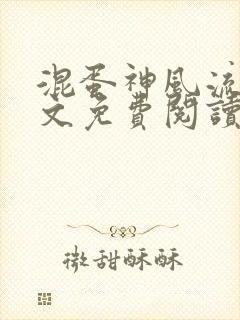 混蛋神風流
文免費閱讀
微甜酥酥